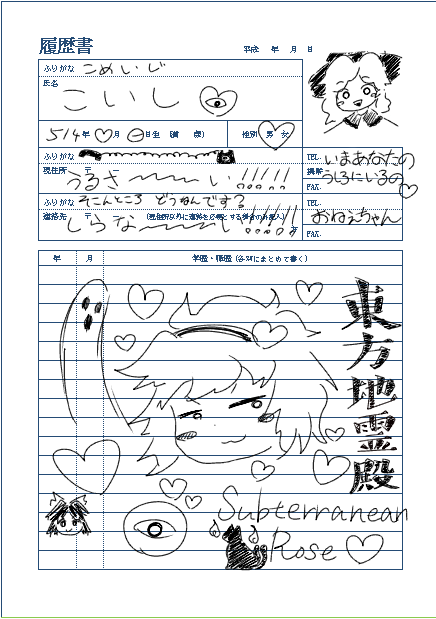 履歴書
平成 年 月 日
ふりがな こめいじ
氏名
こいし
514年 月 日生 (満 歳)
性別 男 女
ふりがな
現住所 〒
うるさ〜〜い!!!!!
TEL
いまあなたの
携帯
うしろにいるの
FAX
ふりがな そこんところ どうなんです?
連絡先 〒 (現住所以外に連絡を必要とする場合のみ記入)
しらな〜〜〜い!!!!!
TEL
おねぇちゃん
FAX
年 月 学歴・職歴 (各別にまとめて書く)
東方地霊殿
Subterranean
Rose